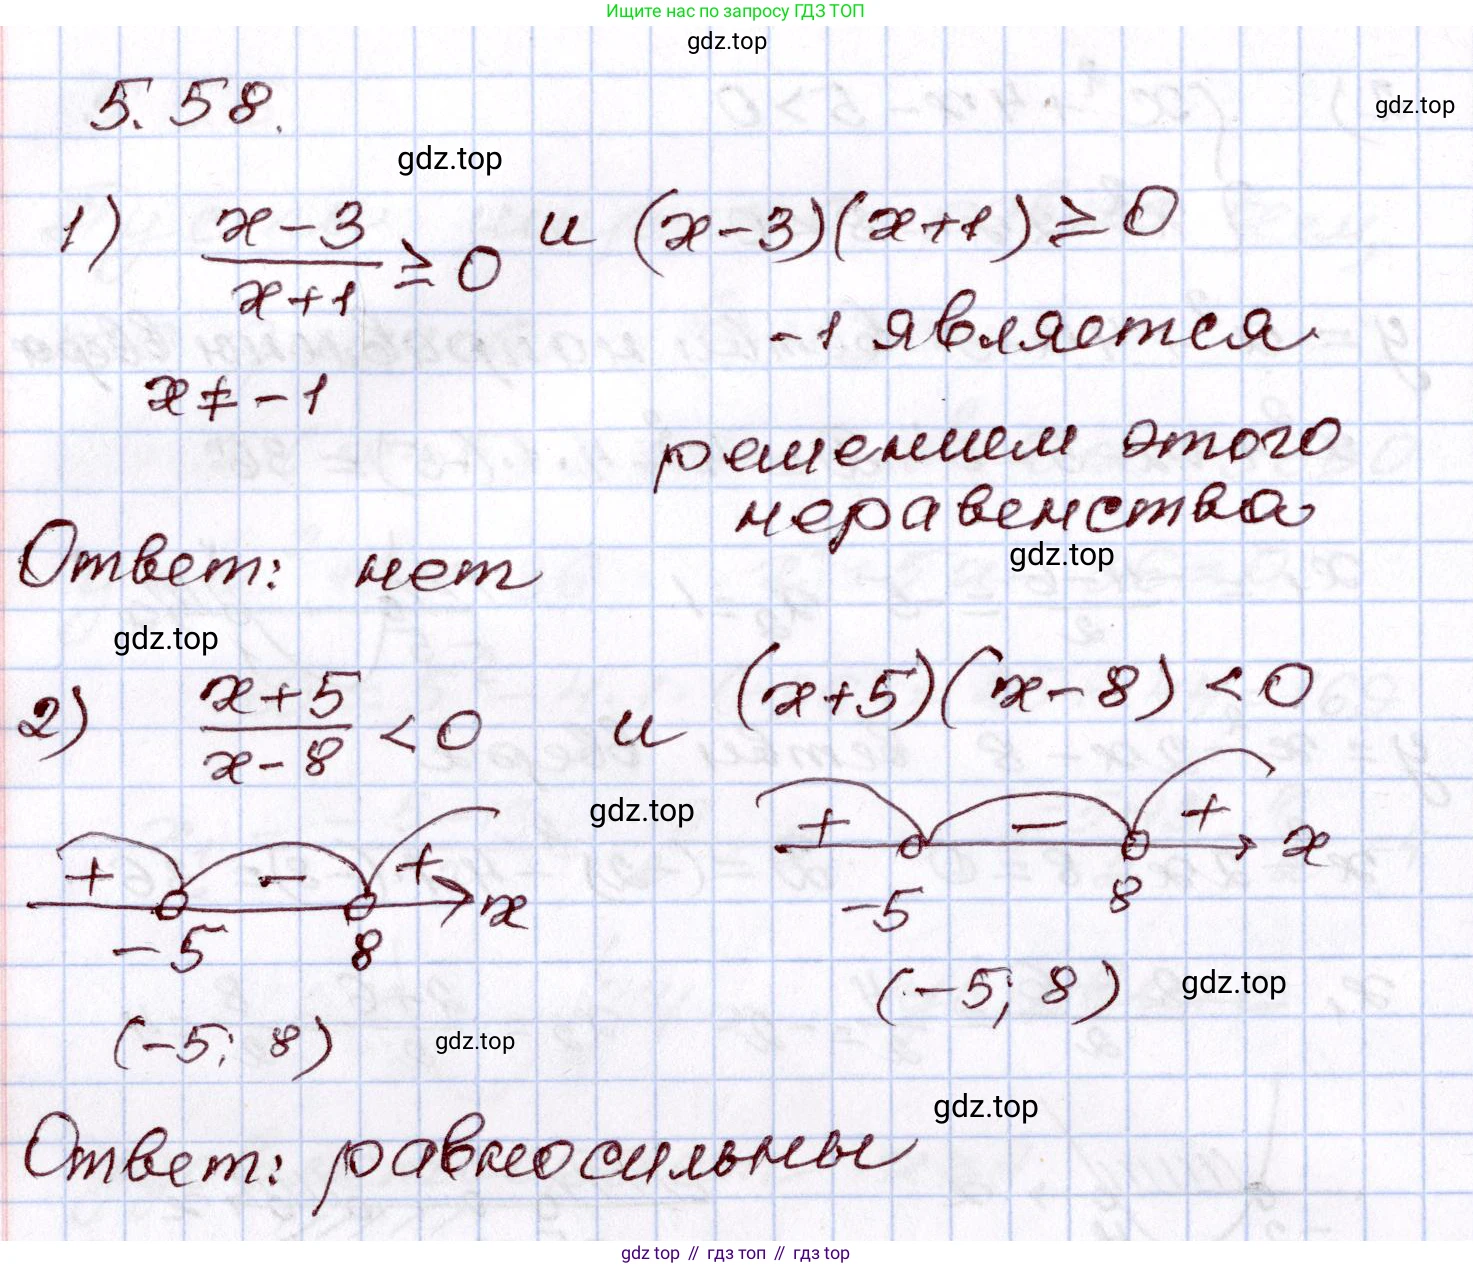 Ищите нас по запросу ГДЗ ТОП
gdz.top
5.58.
gdz.top
gdz.top
1) (x-3)/(x+1) ≥ 0 и (x-3)(x+1) ≥ 0
x ≠ -1
-1 является
решением этого
неравенства
gdz.top
Ответ: нет
gdz.top
2) (x+5)/(x-8) < 0 и (x+5)(x-8) < 0
gdz.top
+ - + x
-5 8
+ - + x
-5 8
(-5; 8)
gdz.top
(-5; 8)
gdz.top
gdz.top
Ответ: равносильны
gdz top // гдз топ // gdz top